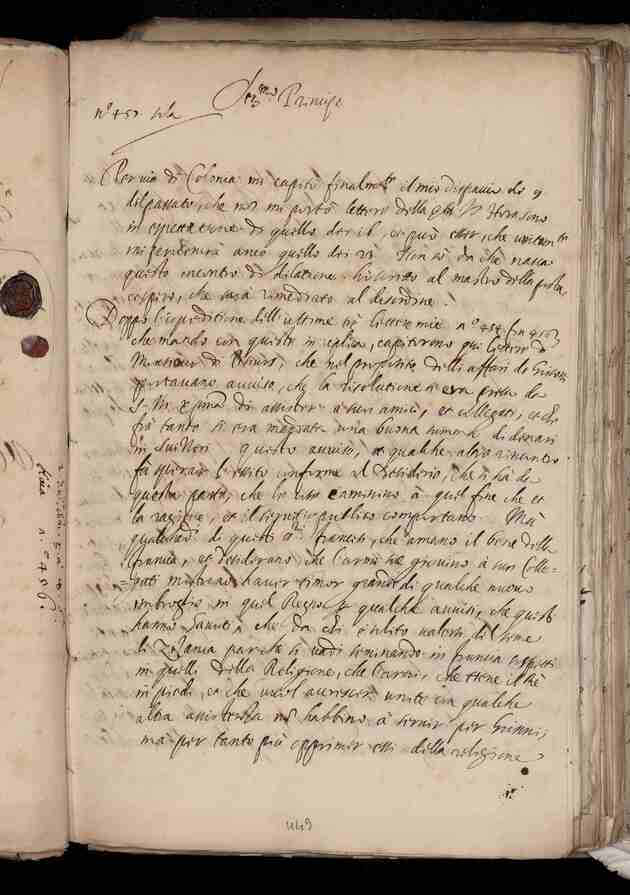 n.º 457. sola
Ser.mo Principe
Per via di Colonia mi capitò finalm.te il mio dispaccio de 9
del passato, che non mi portò lettere della S.tà V.ra Stavo
in espettatione di quello dei 16, et può esser, che unitam.te
mi pervenirà anco quello dei 23. Non so da che nasca
questo incontro di dilatione. hò scritto al mastro della posta,
et spero, che sarà rimediato al disordine.
Doppo l'espeditione dell'ultime tre lettere mie n.º 454. fin 456
che mando con queste in replica, capitorono qui lettere di
Monsieur di, che nel proposito delli affari de Grisoni
portavano avviso, che la risolutione si era presa da
S. M. X.ma di assister à suoi amici, et collegati, et che
frà tanto si era mandata una buona summa di denari
in Suizzeri. questo avviso, et qualche altro rincontro
fà sperar l'esito conforme al desiderio, che si hà da
questa parte, che le cose caminino à quel fine che et
la ragione, et il servitio publico comportano. Mà
qualcuno di questi S.ri francesi, che amano il bene della
francia, et desiderano che l'armi sue giovino à suoi Colle-
=gati mostrano haver timor grande di qualche nuovo
imbroglio in quel Regno per qualche avviso, che questi
hanno havuto, che da chi è solito valersi del seme
di Zizania par che si vadi seminando in francia
in quelli della Religione, che l'armi, che tiene il Rè
in piedi, et che vuol accrescer unite con qualche
altra assistenza non habbino à servir per Grisoni,
mà per tanto più opprimer essi della religione
449